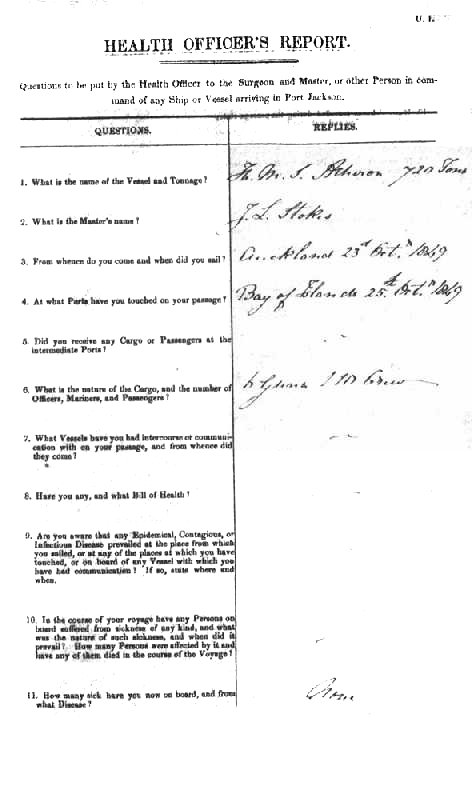 HEALTH OFFICER'S REPORT.
Questions to be put by the Health Officer to the Surgeon and Master, or other Person in com-
mand of any Ship or Vessel arriving in Port Jackson.
QUESTIONS.
REPLIES.
1. What is the name of the Vessel and Tonnage?
H. M. S. Acheron 720 Tons
2. What is the Master's name?
J. L. Stokes
3. From whence do you come and when did you sail?
Auckland 23d Octr. 1849
4. At what Ports have you touched on your passage?
Bay of Islands 25th Octr. 1849
5. Did you receive any Cargo or Passengers at the
intermediate Ports?
6. What is the nature of the Cargo, and the number of
Officers, Mariners, and Passengers?
7. What Vessels have you had intercourse or communi-
cation with on your passage, and from whence did
they come?
8. Have you any, and what Bill of Health?
9. Are you aware that any Epidemical, Contagious, or
Infectious Disease prevailed at the place from which
you sailed, or at any of the places at which you have
touched, or on board of any Vessel with which you
have had communication? If so, state where and
when.
10. In the course of your voyage have any Persons on
board suffered from sickness of any kind, and what
was the nature of such sickness, and when did it
prevail? How many Persons were affected by it and
have any of them died in the course of the Voyage?
11. How many sick have you now on board, and from
what Disease?
None